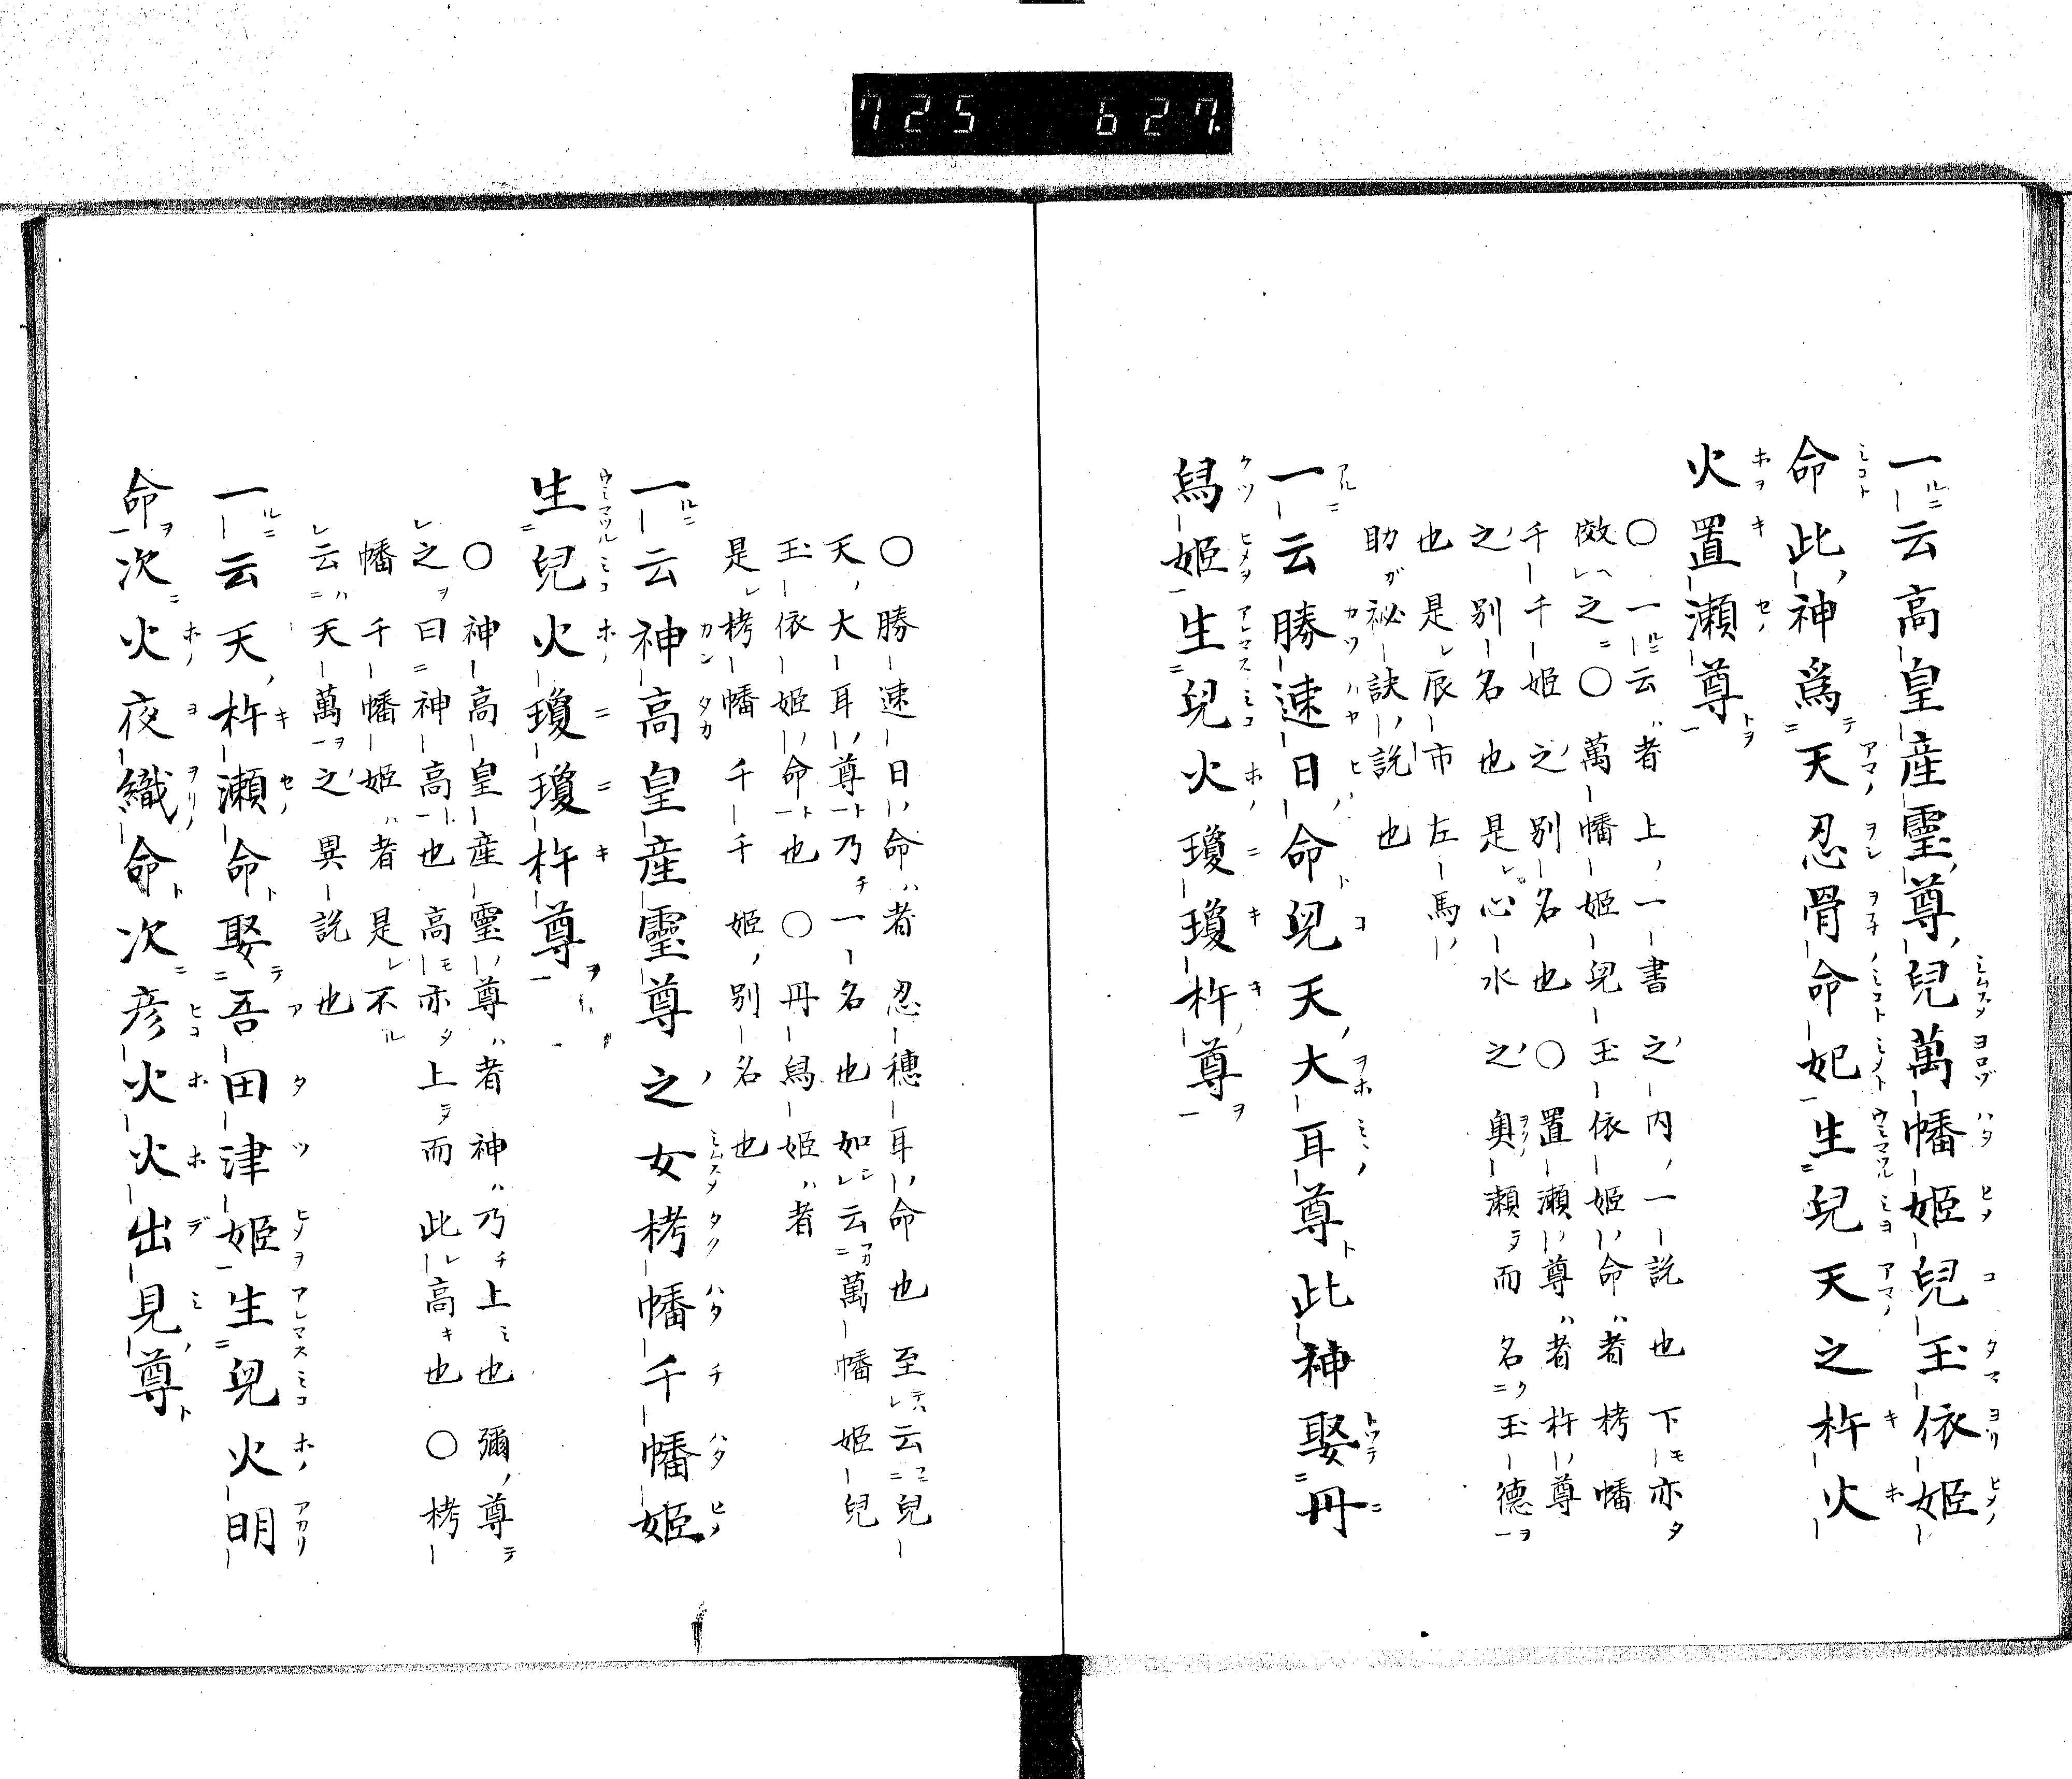 725 627
一云高皇産靈尊兒萬幡姫兒玉依姫
命此神爲天忍骨命妃生兒天之杵火
火置瀬尊
〇一云者上一書之内一説也下亦
傚之〇萬幡姫兒玉依姫命者栲幡
千千姫之別名也〇置瀬尊者杵尊
之別名也是心水之奥瀬而名玉德
也是辰市左馬
助祕訣説也
一云勝速日命兒天大耳尊此神娶丹
舄姫生兒火瓊瓊杵尊
〇勝速日命者忍穗耳命也至云兒
天大耳尊乃一名也如云萬幡姫兒
玉依姫命也〇丹舄姫者
是栲幡千千姫別名也
一云神高皇産靈尊之女栲幡千幡姫
生兒火瓊瓊杵尊
〇神高皇産靈尊者神乃上也彌尊
之曰神高也高亦上而此高也〇栲
幡千幡姫者是不
云天萬之異説也
一云天杵瀬命娶吾田津姫生兒火明
命次火夜織命次彦火火出見尊